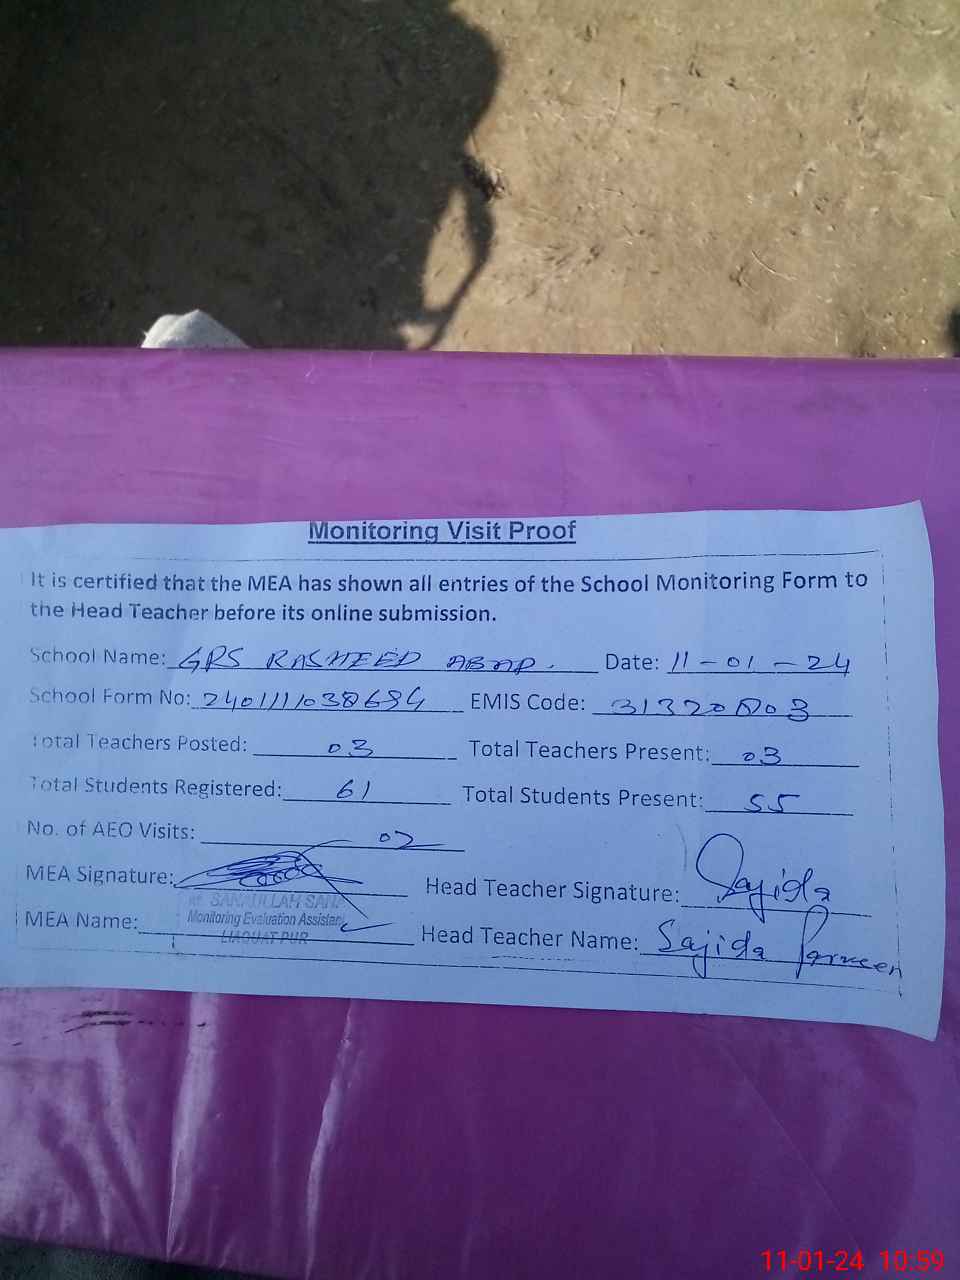 Monitoring Visit Proof
It is certified that the MEA has shown all entries of the School Monitoring Form to
the Head Teacher before its online submission.
School Name: GRS RASHEED ABAD. Date: 11-01-24
School Form No: 2401111038684 EMIS Code: 31320803
Total Teachers Posted: 03 Total Teachers Present: 03
Total Students Registered: 61 Total Students Present: 55
No. of AEO Visits: 02
MEA Signature: Head Teacher Signature: Sajida
SANAULLAH SANA
MEA Name: Monitoring Evaluation Assistant Head Teacher Name: Sajida Parveen
LIAQUAT PUR
11-01-24 10:59